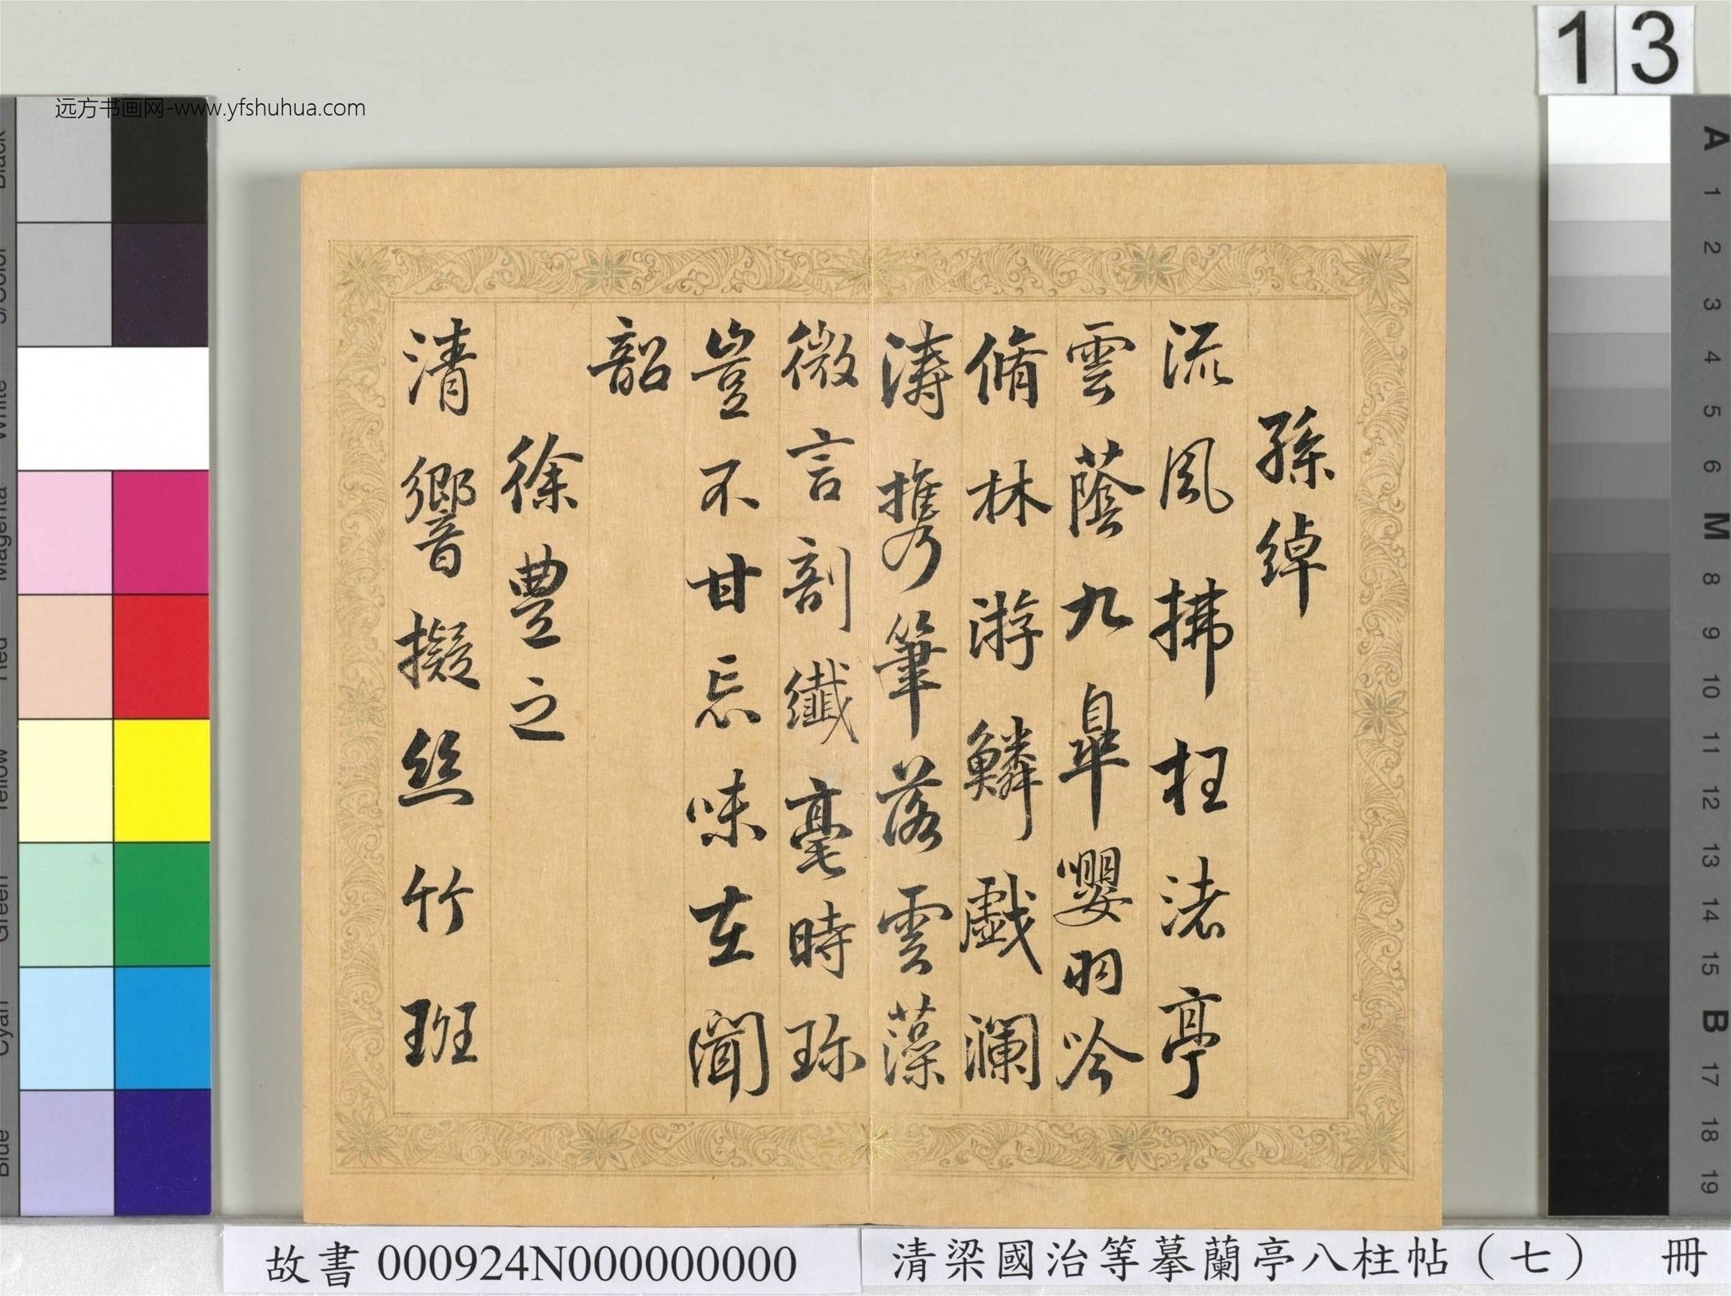 孫綽
流風拂枉渚亭
雲蔭九臯嚶羽吟
脩林游鱗戲瀾
濤攜筆落雲藻
微言剖纖毫時珎
豈不甘忘味在聞
韶
徐豊之
清響擬絲竹班
13
远方书画网-www.yfshuhua.com
Black
3/Color
White
Magenta
Red
Yellow
Green
Cyan
Blue
A
1
2
3
4
5
6
M
8
9
10
11
12
13
14
15
B
17
18
19
故書 000924N000000000
清梁國治等摹蘭亭八柱帖（七） 冊